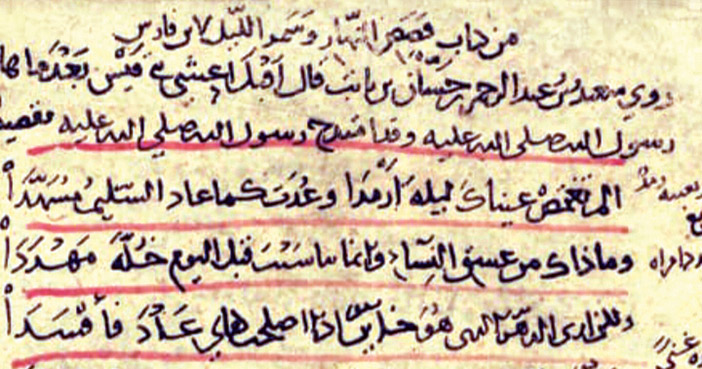 من كتاب قصص النهار وسمر الليل لابن فارس
روي سعيد بن عبد الرحمن بن حسان بن ثابت قال اقبل اعشى بني قيس بعدما ها
رسول الله صلى الله عليه وقد امتدح رسول الله صلى الله عليه بقصيد
الم تغتمض عيناك ليلة ارمدا وعدت كما عاد السليم مسهدا
وماذاك من عشق النساء وانما تناسيت قبل اليوم خلة مهددا
ولكن ارى الدهر الذي هو خاين اذا اصلحت كفاي عاد فأفسدا